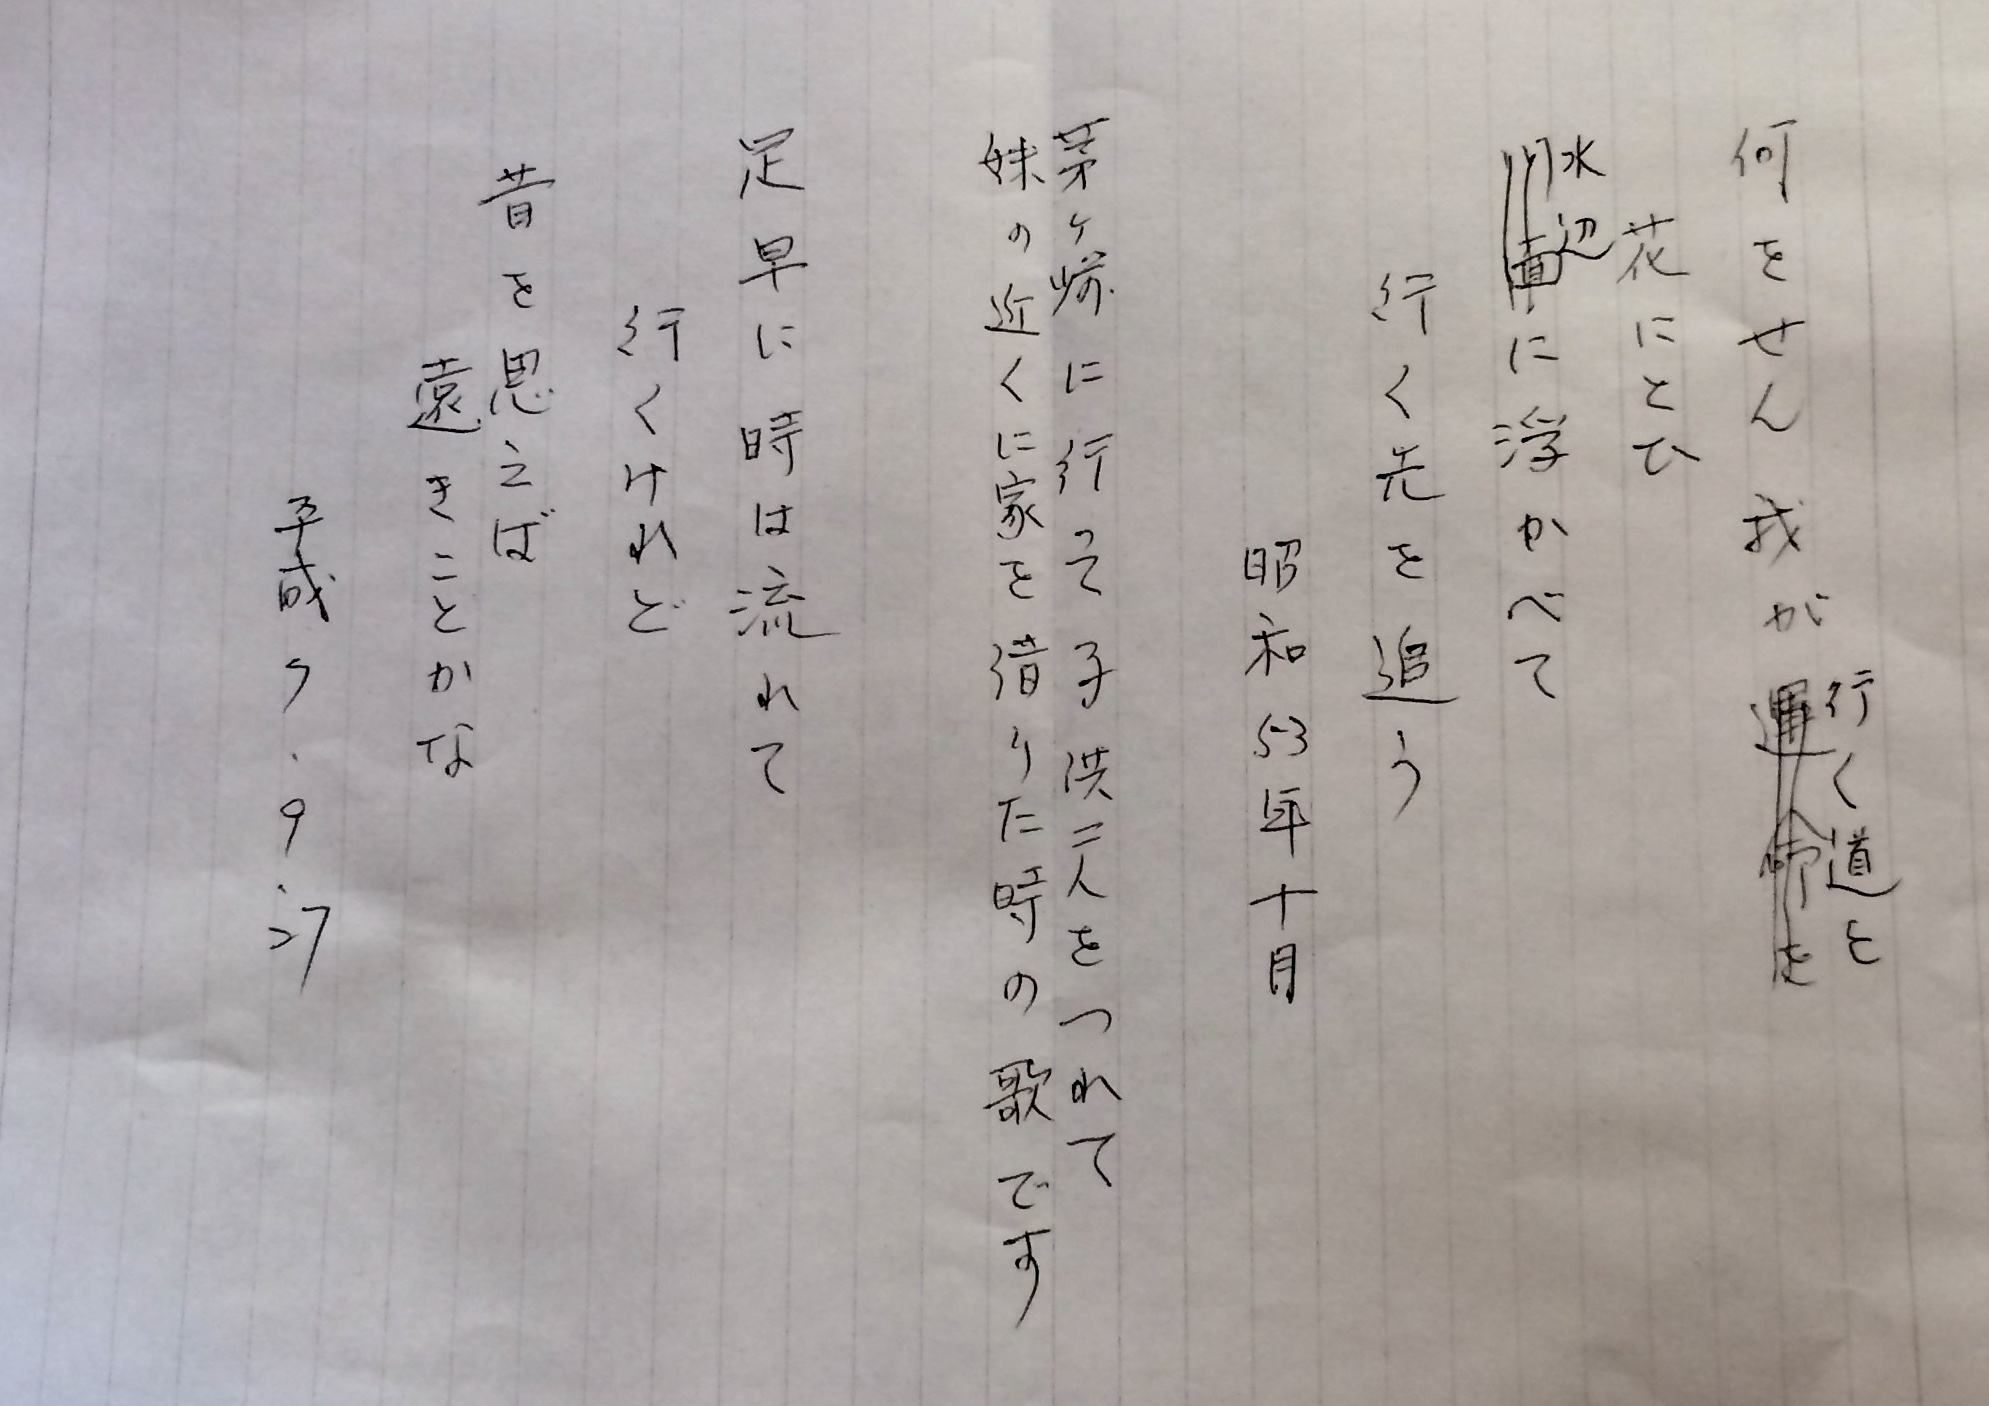 何をせん我が行く道を
花にとひ
水辺に浮かべて
行く先を追う
昭和53年十月
茅ヶ崎に行って子供二人をつれて
妹の近くに家を借りた時の歌です
足早に時は流れて
行くけれど
昔を思えば
遠きことかな
平成9.27